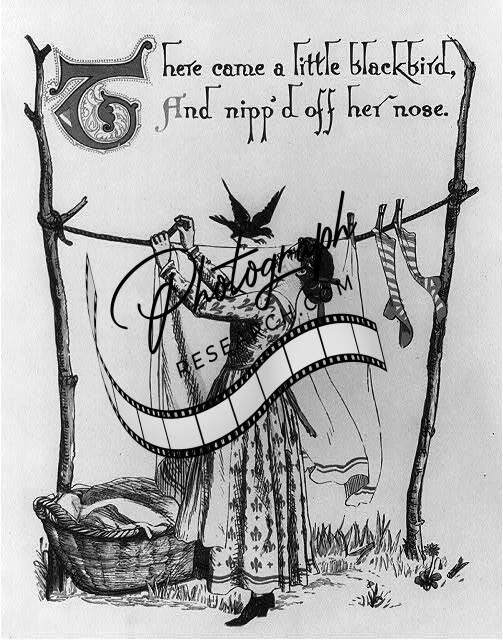 There came a little blackbird,
And nipp'd off her nose.
Photograph
RESEARCH.COM